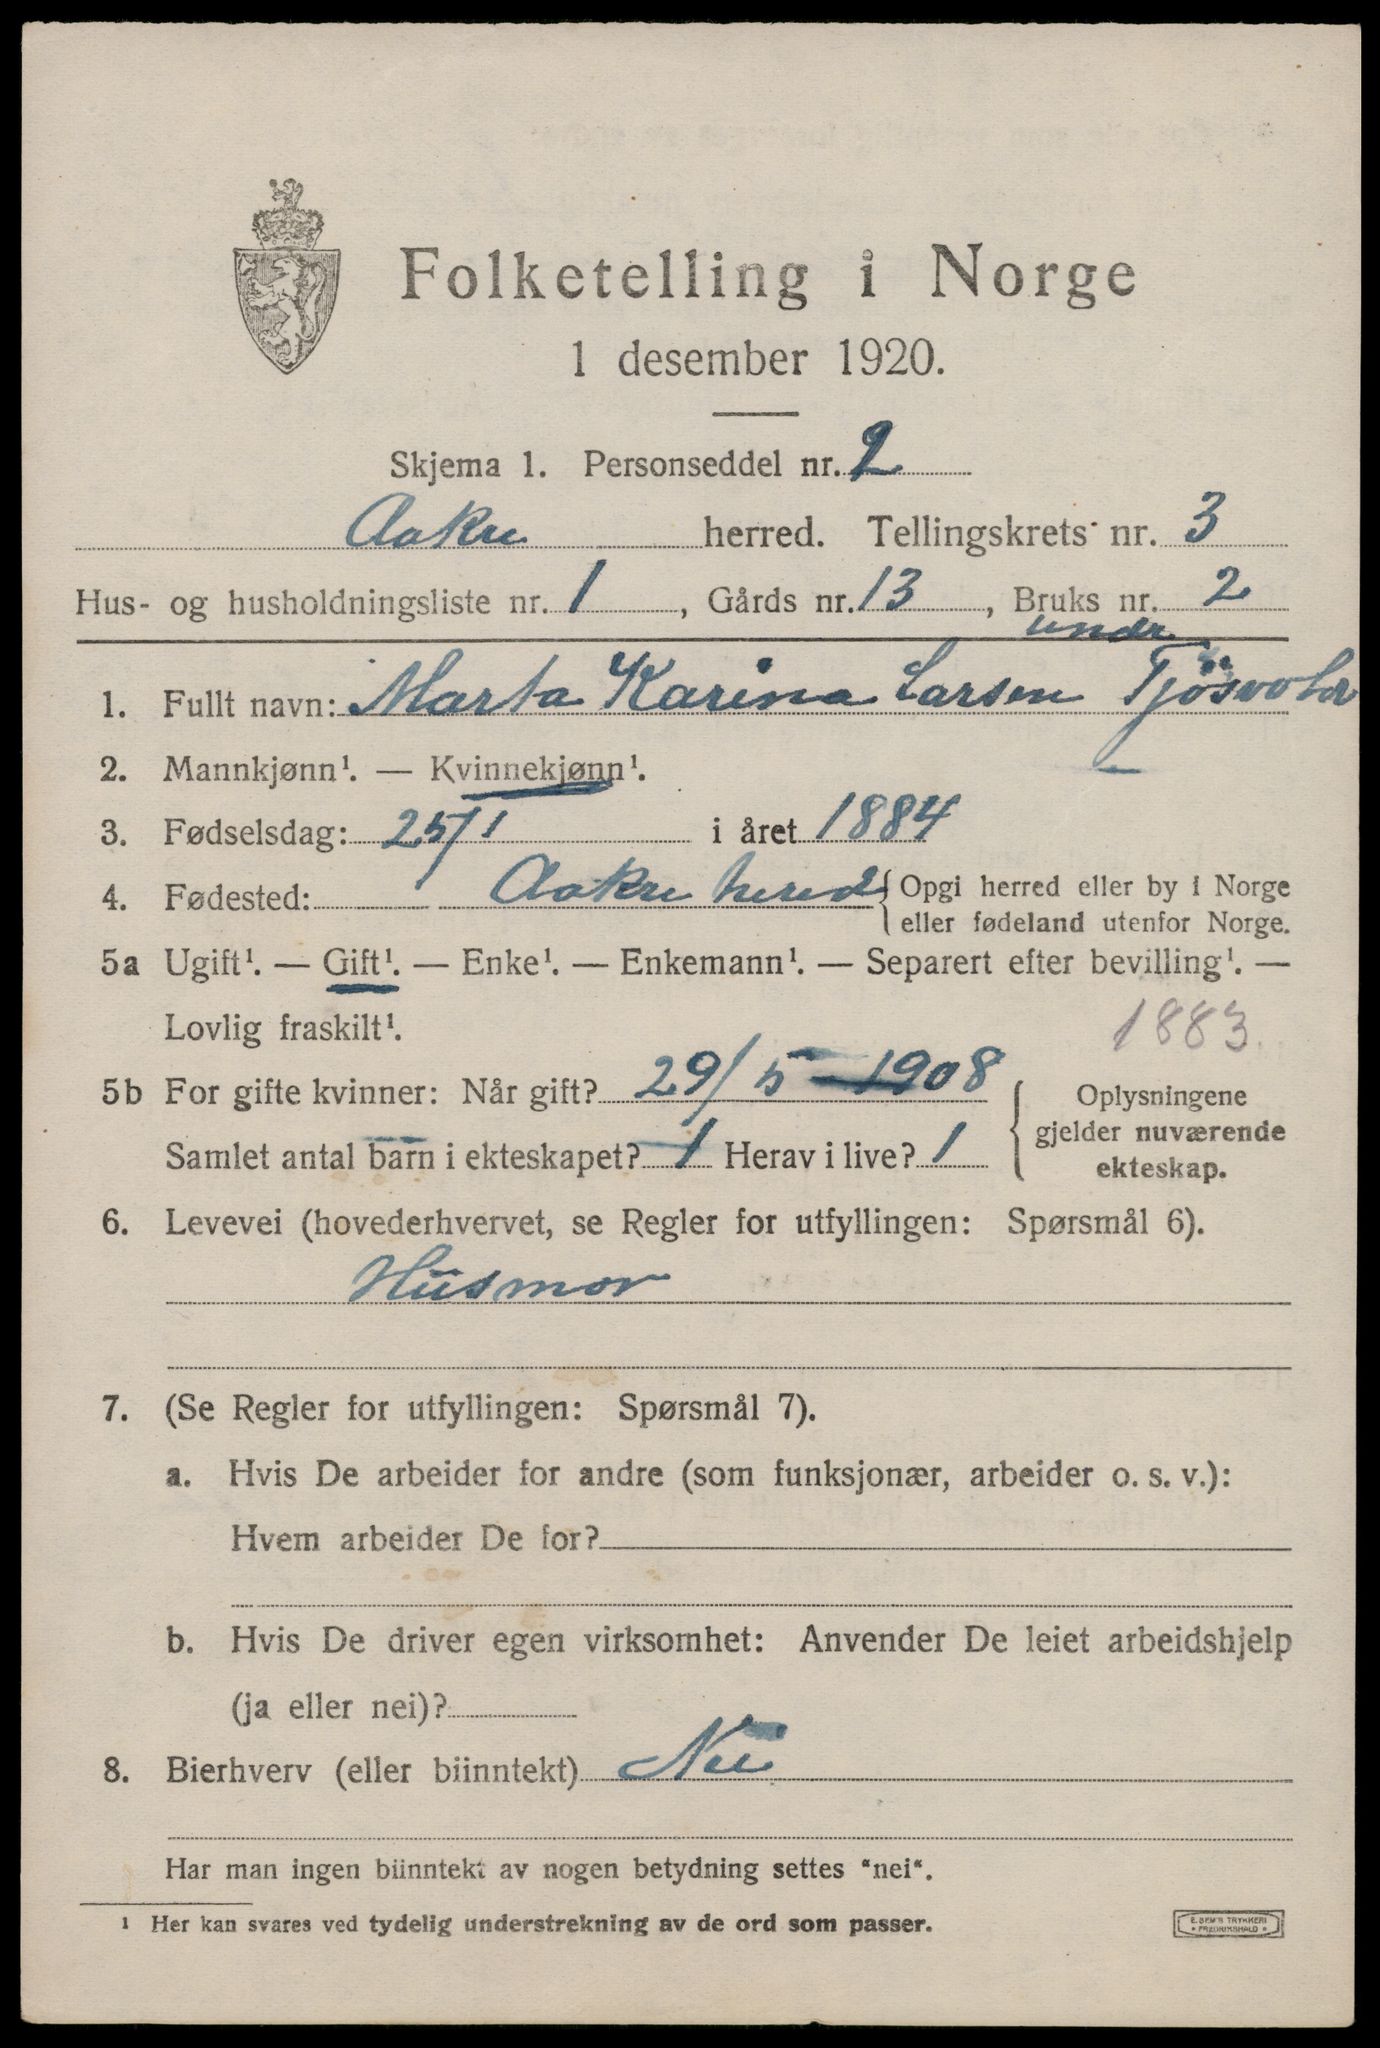 Folketelling i Norge
1 desember 1920.
Skjema 1. Personseddel nr. 2
Aakre herred. Tellingskrets nr. 3
Hus- og husholdningsliste nr. 1, Gårds nr. 13, Bruks nr. 2
undr
1. Fullt navn: Marta Karina Larsen
2. Mannkjønn¹. — Kvinnekjønn¹.
3. Fødselsdag: 25/1 i året 1884
4. Fødested: Aakre herred { Opgi herred eller by i Norge
eller fødeland utenfor Norge.
5a Ugift¹. — Gift¹. — Enke¹. — Enkemann¹. — Separert efter bevilling¹. —
Lovlig fraskilt¹.
1883
5b For gifte kvinner: Når gift? 29/5 - 1908
Samlet antal barn i ekteskapet? 1 Herav i live? 1
{ Oplysningene
gjelder nuværende
ekteskap.
6. Levevei (hovederhvervet, se Regler for utfyllingen: Spørsmål 6).
Husmor
7. (Se Regler for utfyllingen: Spørsmål 7).
a. Hvis De arbeider for andre (som funksjonær, arbeider o. s. v.):
Hvem arbeider De for?
b. Hvis De driver egen virksomhet: Anvender De leiet arbeidshjelp
(ja eller nei)?
8. Bierhverv (eller biinntekt) Nei
Har man ingen biinntekt av nogen betydning settes "nei".
¹ Her kan svares ved tydelig understrekning av de ord som passer.
E. SEM'S TRYKKERI
* FREDRIKSHALD *